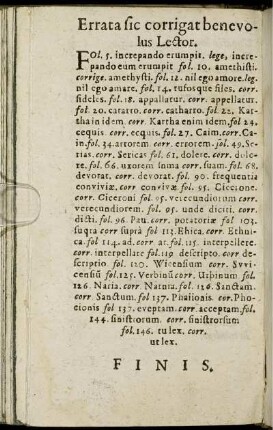 Errata sic corrigat benevo-
lus Lector.
FOl. 5. increpando erumpit. lege, incre-
pando eum erumpit fol. 10. amethisti.
corrige. amethysti. fol. 12. nil ego amore. leg.
nil ego amare. fol. 14. rufosque files. corr.
fideles. fol. 18. appallatur. corr. appellatur.
fol. 20. catarro. corr. catharro. fol. 22. Kar-
tha in idem. corr. Kartha enim idem. fol. 24.
cequis. corr. ecquis. fol. 27. Caim. corr. Ca-
in. fol. 34. artorem. corr. errorem. fol. 49. Se-
rias. corr. Sericas fol. 61. dolere. corr. dule-
re. fol. 66. uxorem snma corr. suam fol. 68.
devorat. corr. devorat. fol. 90. frequentia
conviviæ. corr convivæ fol. 95. Ciccione.
corr. Ciceroni fol. 95. verecundiorum corr.
verecundiorem. fol. 95. unde diciti. corr.
dicti. fol. 96. Pau. corr. potatoriæ fol 103.
suqra corr suprà fol 113. Ehica. corr. Ethni-
ca. fol 114. ad. corr at. fol. 115. interpellere.
corr. interpellare fol. 119 descripto. corr de-
scriptio. fol. 120. Wirensium corr. Svvi-
censiũ fol. 125. Verbinũ corr. Urbinum fol.
126. Naria. corr Natura. fol. 126. Sanctam.
corr. Sanctum. fol 137. Phaiionis. cor. Pho-
cionis fol 137. eveptam. corr acceptam. fol.
144. sinistiorum. corr. sinistrorsum
fol. 146. tu lex. corr.
ut lex.
FINIS.